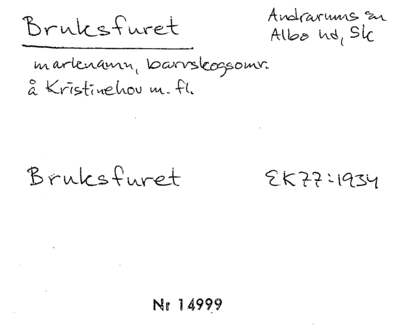 Bruksfuret
Andrarums sn
Albo hd, Sk
marknamn, barrskogsomr.
å Kristinehov m. fl.
Bruksfuret
EK77:1934
Nr 14999